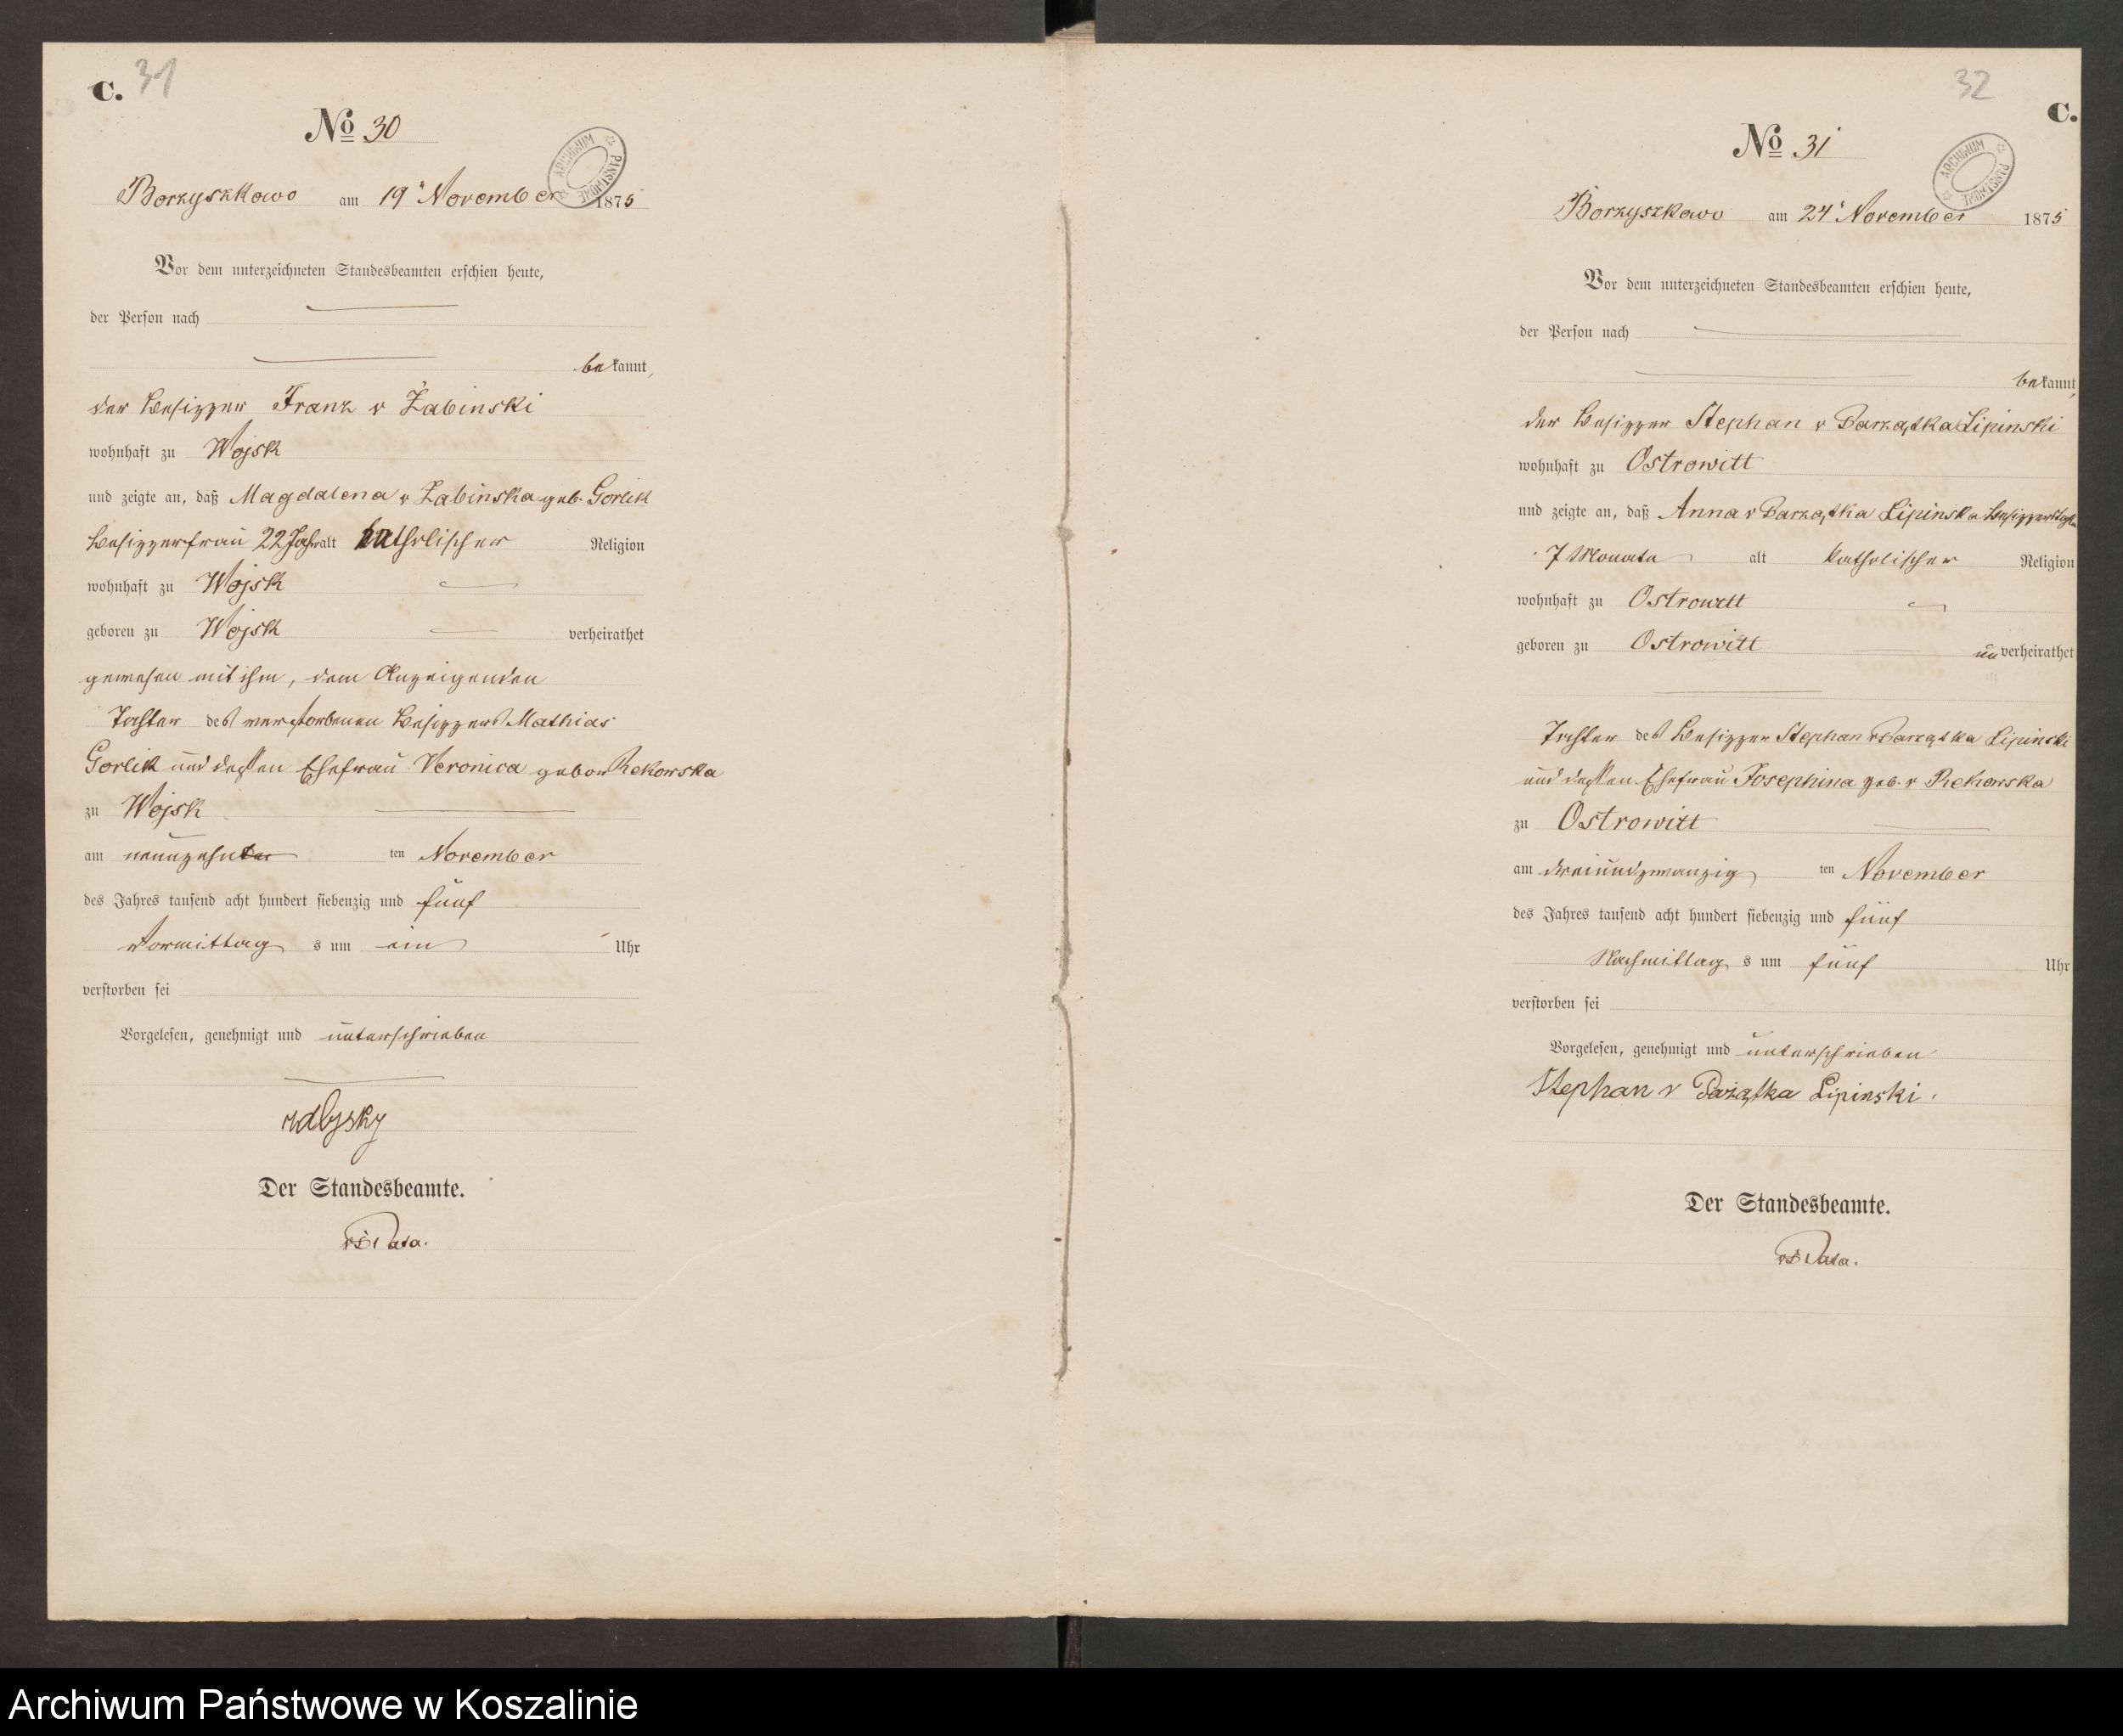 C. 31
No 30
ARCHIWUM PAŃSTWOWE
Borzyszkowo am 19" November 1875
Vor dem unterzeichneten Standesbeamten erschien heute,
der Person nach
bekannt,
der Besizzer Franz v Żabinski
wohnhaft zu Wojsk
und zeigte an, daß Magdalena v Zabinska geb. Gorlik
Besizzerfrau 22 Jahr alt katholischer Religion
wohnhaft zu Wojsk
geboren zu Wojsk verheirathet
gewesen mit ihm, dem Anzeigenden
Tochter des verstorbenen Besizzers Mathias
Gorlik und dessen Ehefrau Veronica gebor Rekowska
zu Wojsk
am neunzehn ten November
des Jahres tausend acht hundert siebenzig und fünf
Vormittag s um ein Uhr
verstorben sei
Vorgelesen, genehmigt und unterschrieben
Der Standesbeamte.
32 C.
No 31
ARCHIWUM PAŃSTWOWE
Borzyszkowo am 24' November 1875
Vor dem unterzeichneten Standesbeamten erschien heute,
der Person nach
bekannt,
der Besizzer Stephan v Parzątka Lipinski
wohnhaft zu Ostrowitt
und zeigte an, daß Anna v Parzątka Lipinska
7 Monate alt katholischer Religion
wohnhaft zu Ostrowitt
geboren zu Ostrowitt unverheirathet
Tochter des Besizzer Stephan v Parzątka Lipinski
und dessen Ehefrau Josephina geb. v Rekowska
zu Ostrowitt
am dreiundzwanzig ten November
des Jahres tausend acht hundert siebenzig und fünf
Nachmittag s um fünf Uhr
verstorben sei
Vorgelesen, genehmigt und unterschrieben
Stephan v Pażątka Lipinski.
Der Standesbeamte.
Archiwum Państwowe w Koszalinie